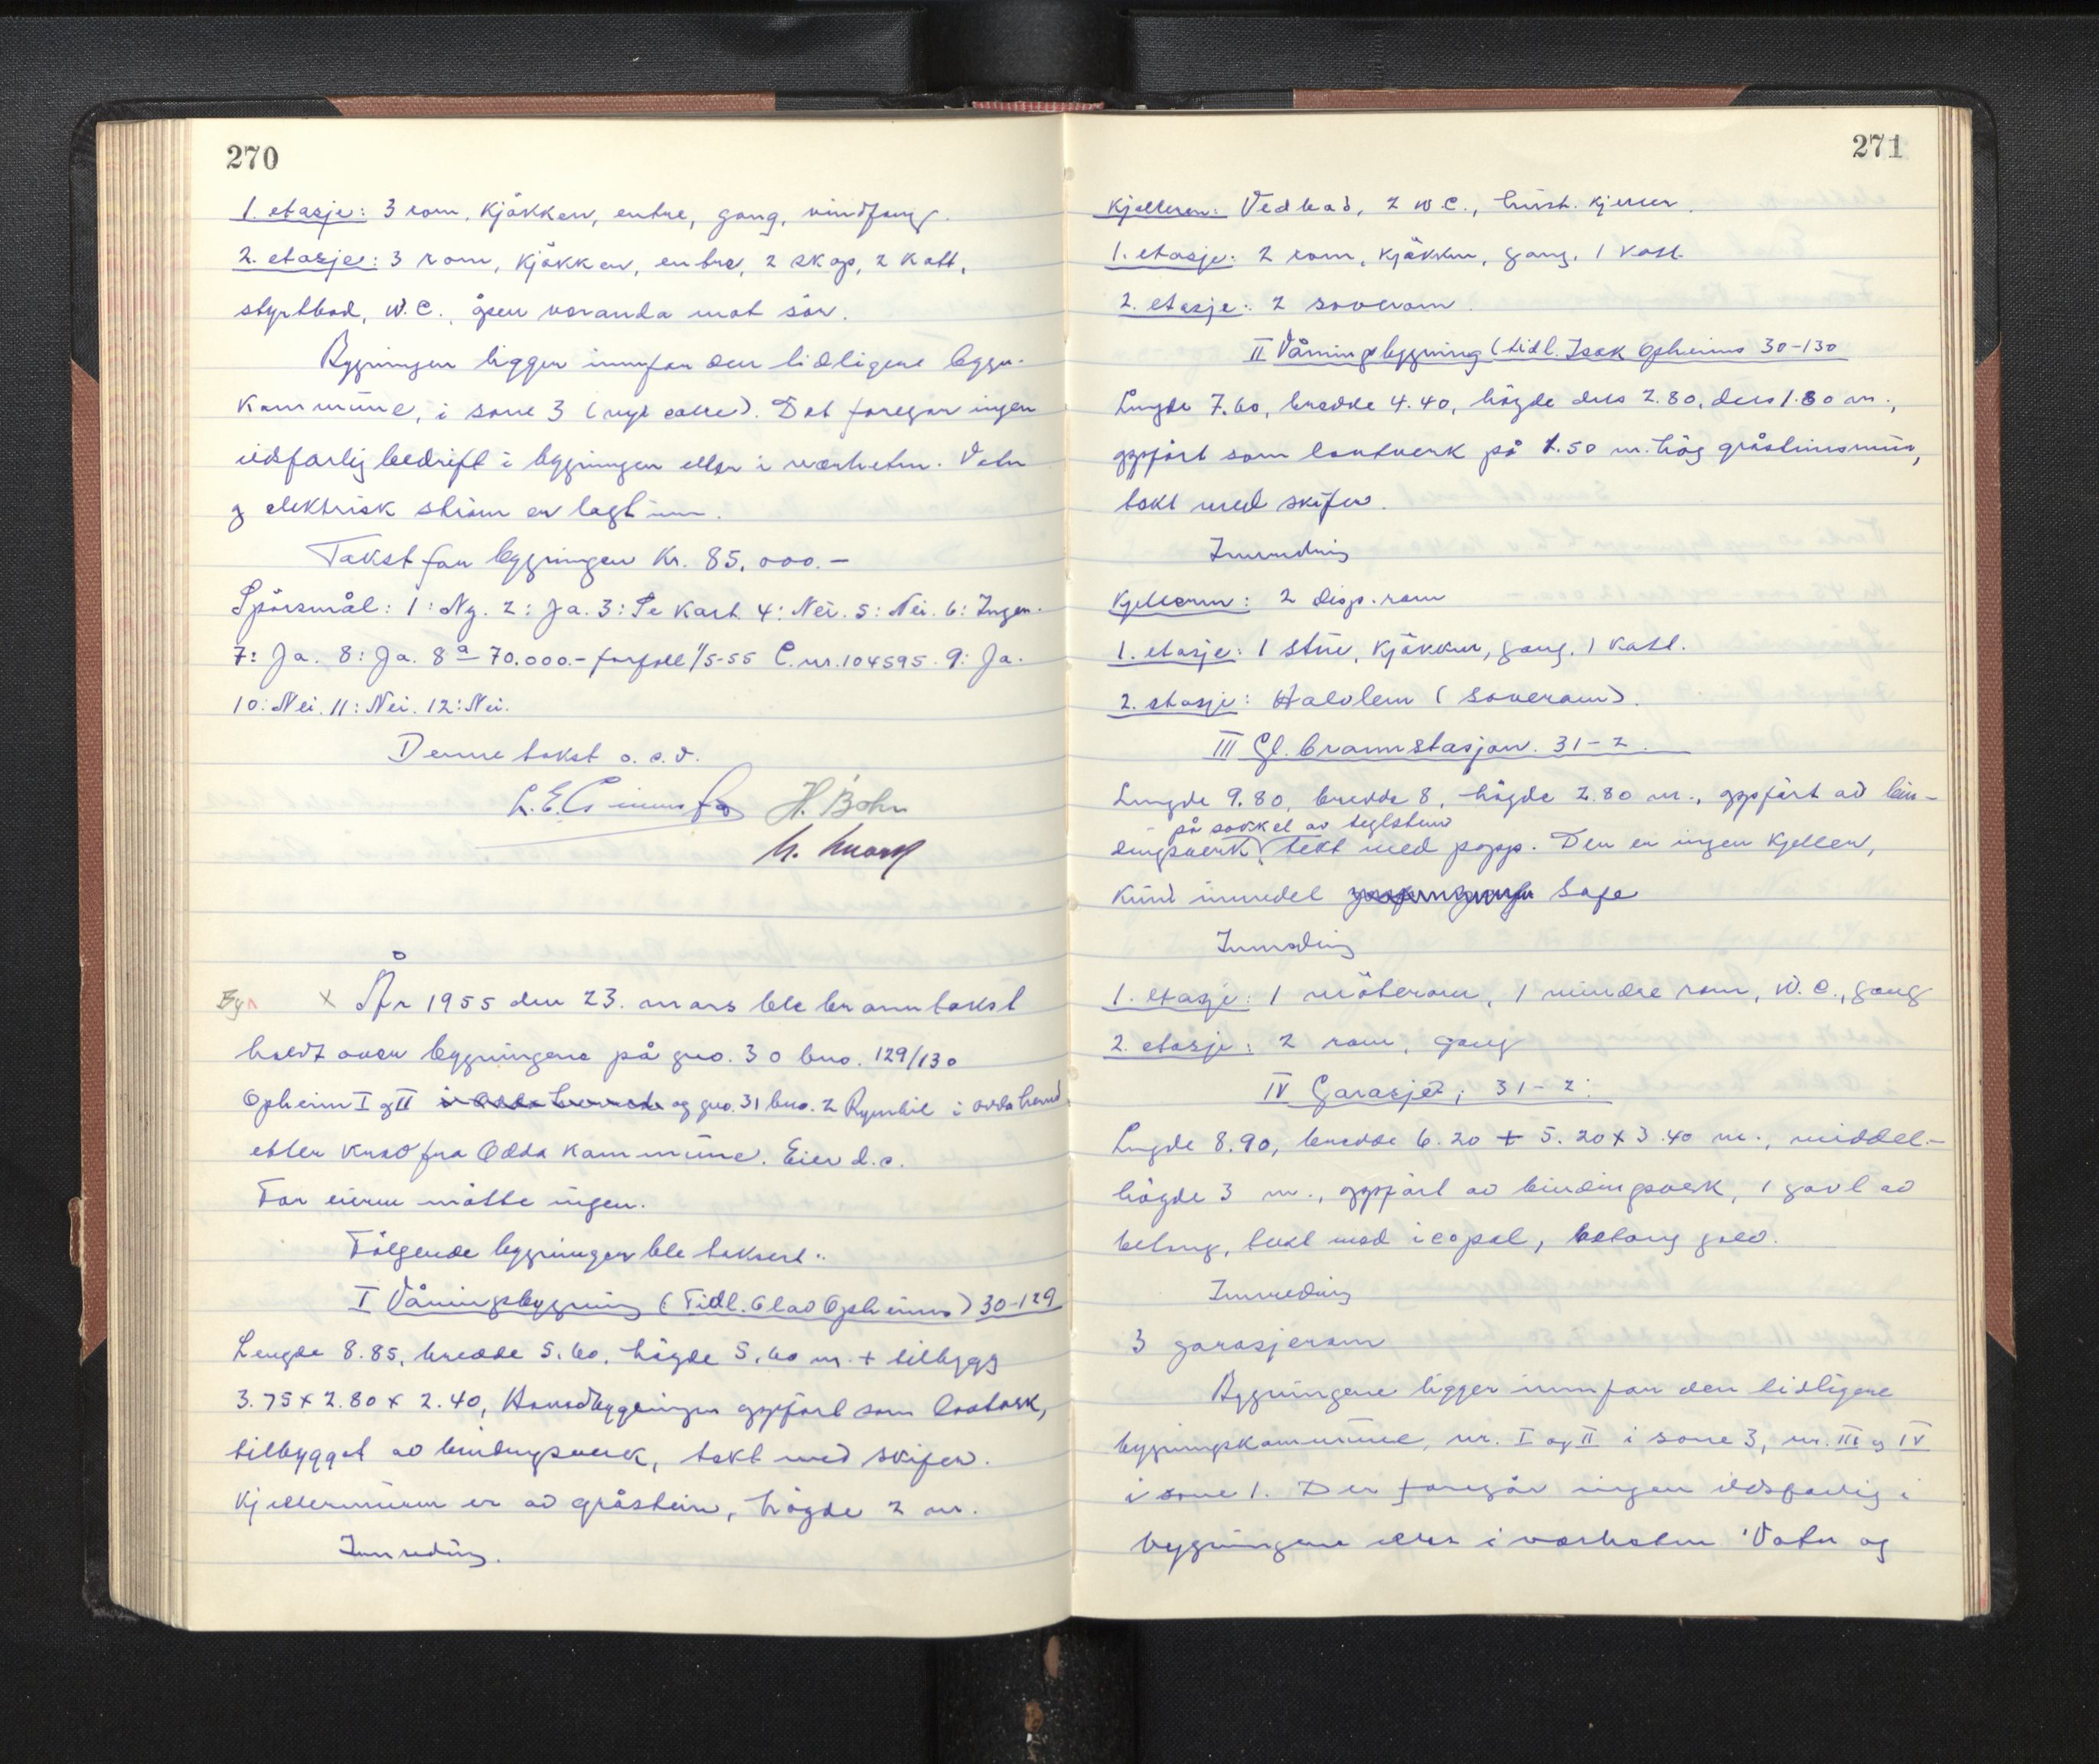 270
1. etasje: 3 rom, kjökken, entre, gang, vindfang.
2. etasje: 3 rom, kjökken, entre, 2 skap, 2 kott,
styrtbad, W.C., åpen veranda mot sör.
Bygningen ligger innfor den tidligere bygn.
kommune, i sone 3 (nye ). Det foregår ingen
ildsfarlig bedrift i bygningen eller i nærheten. Vatn
og elektrisk ström er lagt inn.
Takst for bygningen kr. 85.000.-
Spörsmål: 1: Ny. 2: Ja. 3: Se kart. 4: Nei. 5: Nei. 6: Ingen.
7: Ja. 8: Ja. 8a 70.000.- forfall 1/5-55 C.nr. 104595. 9: Ja.
10: Nei. 11: Nei. 12: Nei.
Denne takst o.s.v.
H. Böhn
Byn x År 1955 den 23. mars ble branntakst
holdt over bygningene på gno. 30 bno. 129/130
Opheim I og II og gno. 31 bno. 2 i Odda herred
etter krav fra Odda kommune. Eier d.s.
For eieren mötte ingen.
Fölgende bygninger ble taksert:
I Våningsbygning (Tidl. Olav Opheims) 30-129
Lengde 8.85, bredde 5.60, högde 5.60 m. + tilbygg
3.75 x 2.80 x 2.40, Hovedbygningen oppfört som laftverk,
tilbygget av bindingsverk, tekt med skifer.
Kjellermuren er av gråstein, högde 2 m.
Innreding.
271
Kjelleren: Vedbod, 2 W.C., hush. kjeller.
1. etasje: 2 rom, kjökken, gang, 1 kott.
2. etasje: 2 soverom.
II Våningsbygning (tidl. Isak Opheims 30-130
Lengde 7.60, bredde 4.40, högde dels 2.80, dels 1.80 m.,
oppfört som laftverk på 1.50 m. hög gråsteinsmur,
tekt med skifer.
Innreding
Kjelleren: 2 disp. rom
1. etasje: 1 stue, kjökken, gang, 1 kott.
2. etasje: Halvlem (soverom).
III Gl. brannstasjon. 31-2.
Lengde 9.80, bredde 8, högde 2.80 m., oppfört av bin-
på sokkel av teglstein
dingsverk, tekt med papp. Den er ingen kjeller,
kun innredet safe
Innreding
1. etasje: 1 möterom, 1 mindre rom, W.C., gang
2. etasje: 2 rom, gang
IV Garasje; 31-2.
Lengde 8.90, bredde 6.20 + 5.20 x 3.40 m., middel-
högde 3 m., oppfört av bindingsverk, 1 gavl av
betong, tekt med icopal, betong golv.
Innreding
3 garasjerom
Bygningene ligger innfor den tidligere
bygningskommune, nr. I og II i sone 3, nr. III og IV
i sone 1. Der foregår ingen ildsfarlig i
bygningene eller i nærheten Vatn og